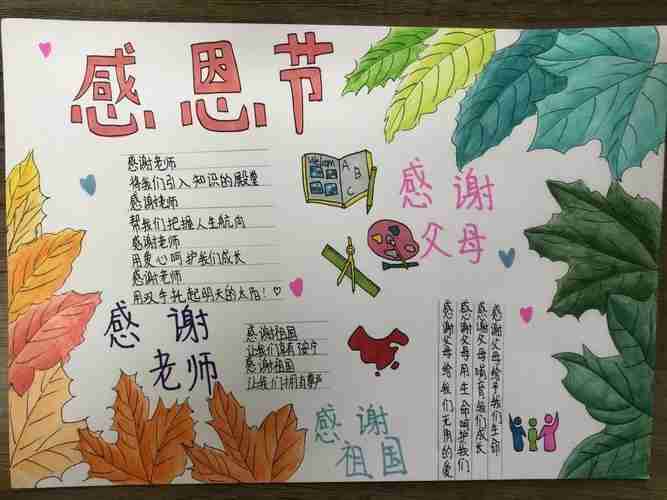 感恩节
感谢老师
将我们引入知识的殿堂
感谢老师
帮我们把握人生航向
感谢老师
用爱心呵护我们成长
感谢老师
用双手托起明天的太阳！
A
B
C
感谢
父母
感谢
老师
感谢祖国
让我们拥有安宁
感谢祖国
让我们拥有尊严
感谢父母给予我们生命
感谢父母哺育我们成长
感谢父母用生命呵护我们
感谢父母给我们无限的爱
感谢
祖国